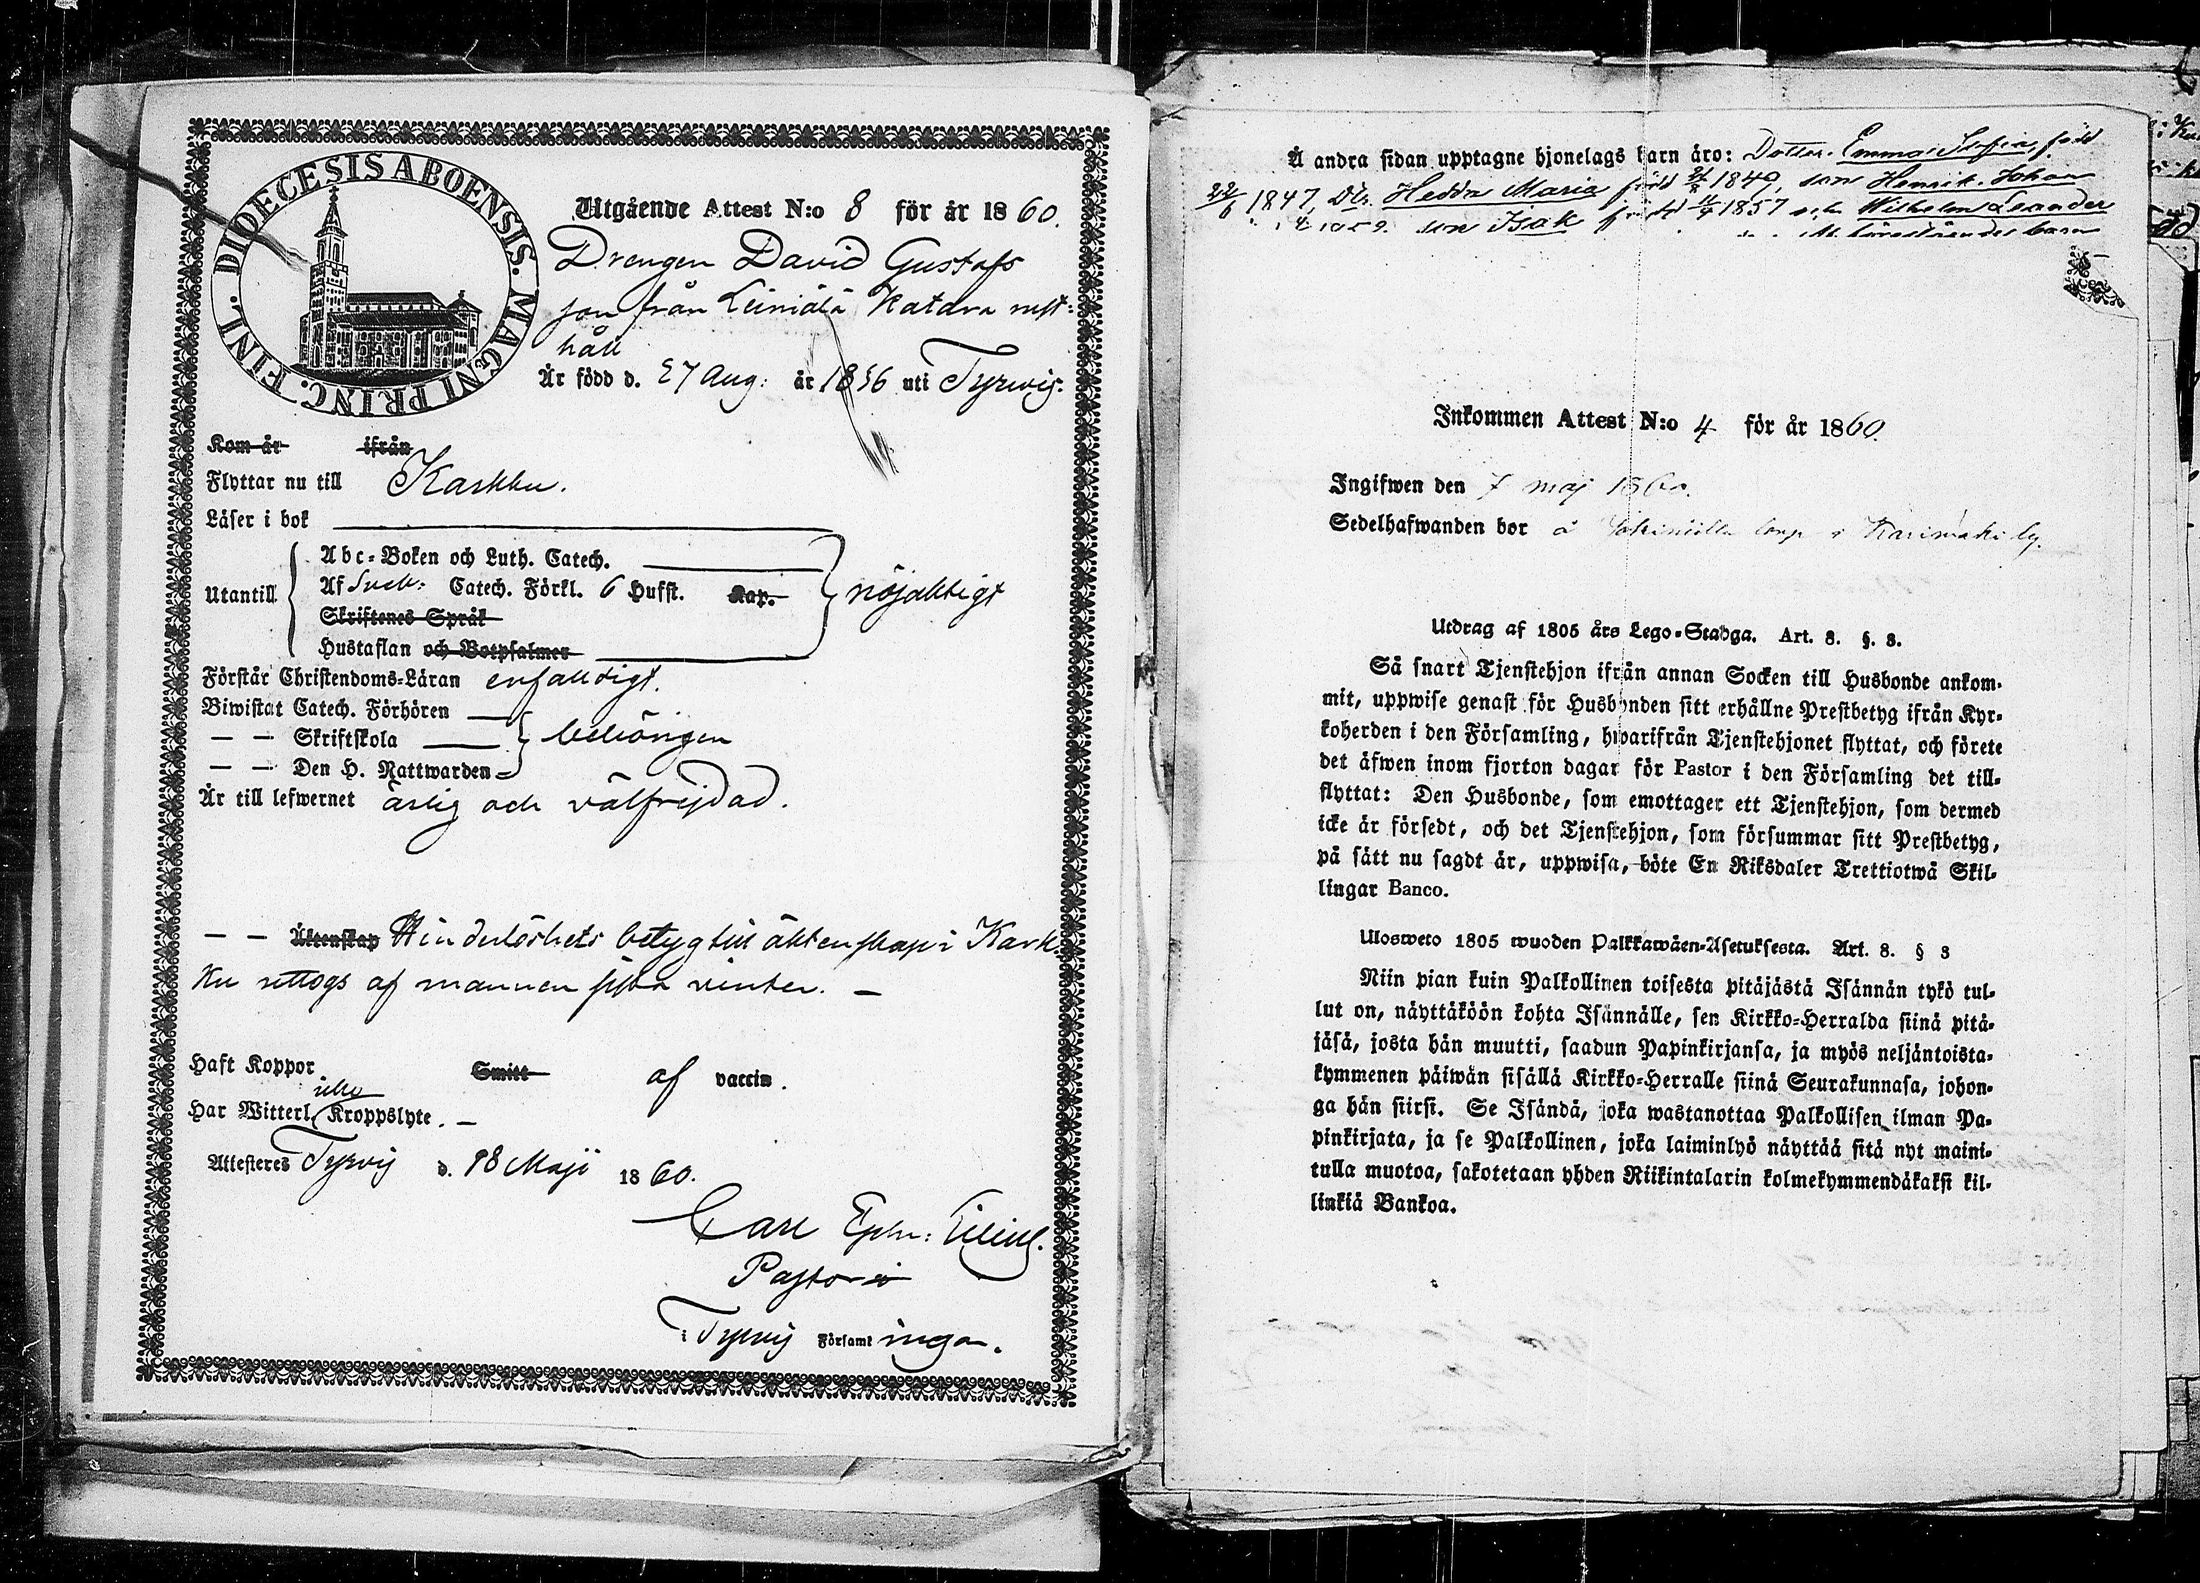 DIOECESIS ABOENSIS. MAGNI PRINC. FINL.
Utgående Attest N:o 8 för år 1860.
Drengen David Gustafs
son från Leiniälä Katara rust:
håll
Är född d. 27 Aug: år 1836 uti Tyrwis.
Kom år ifrån
Flyttar nu till Karkku.
Läser i bok
Utantill
Abc-Boken och Luth. Catech.
Af Sveb: Catech. Förkl. 6 Hufst. Kap.
nöjaktigt
Skriftenes Språk
Hustaflan och Botpsalmer
Förstår Christendoms-Läran enfaldigt.
Biwistat Catech. Förhören
— — Skriftskola behörigen
— — Den H. Nattwarden
Är till lefwernet ärlig och välfrejdad.
— — Äktenskap Hinderlöshets betyg till äktenskap i Kark-
ku uttogs af mannen sista vinter. —
Haft Koppor Smitt af vaccin.
icke
Har Witterl. Kroppslyte. —
Attesteres Tyrvis d. 18 Maji 1860.
Carl Ephr:
Pastor
i Tyrvis Församlingar.
Å andra sidan upptagne hjonelags barn äro: Dotter Emma Sofia, född
22/6 1847, Dtr. Hedda Maria född 1849, son Henrik Johan
son Isak född 1857 och Wilhelm Leander
barn
Inkommen Attest N:o 4 för år 1860.
Ingifwen den 7 maj 1860.
Sedelhafwanden bor å torp i Karimäki by.
Utdrag af 1805 års Lego-Stadga. Art. 8. §. 3.
Så snart Tjenstehjon ifrån annan Socken till Husbonde ankom-
mit, uppwise genast för Husbonden sitt erhållne Prestbetyg ifrån Kyr-
koherden i den Församling, hwarifrån Tjenstehjonet flyttat, och förete
det äfwen inom fjorton dagar för Pastor i den Församling det till-
flyttat: Den Husbonde, som emottager ett Tjenstehjon, som dermed
icke är försedt, och det Tjenstehjon, som försummar sitt Prestbetyg,
på sätt nu sagdt är, uppwisa, böte En Riksdaler Trettiotwå Skil-
lingar Banco.
Ulosweto 1805 wuoden Palkkawäen-Asetuksesta. Art. 8. § 3
Niin pian kuin Palkollinen toisesta pitäjästä Isännän tykö tul-
lut on, näyttäköön kohta Isännälle, sen Kirkko-Herralda siinä pitä-
jäsä, josta hän muutti, saadun Papinkirjansa, ja myös neljäntoista-
kymmenen päiwän sisällä Kirkko-Herralle siinä Seurakunnasa, johon-
ga hän siirsi. Se Isändä, joka wastanottaa Palkollisen ilman Pa-
pinkirjata, ja se Palkollinen, joka laiminlyö näyttää sitä nyt maini-
tulla muotoa, sakotetaan yhden Riikintalarin kolmekymmendäkaksi kil-
linkiä Bankoa.